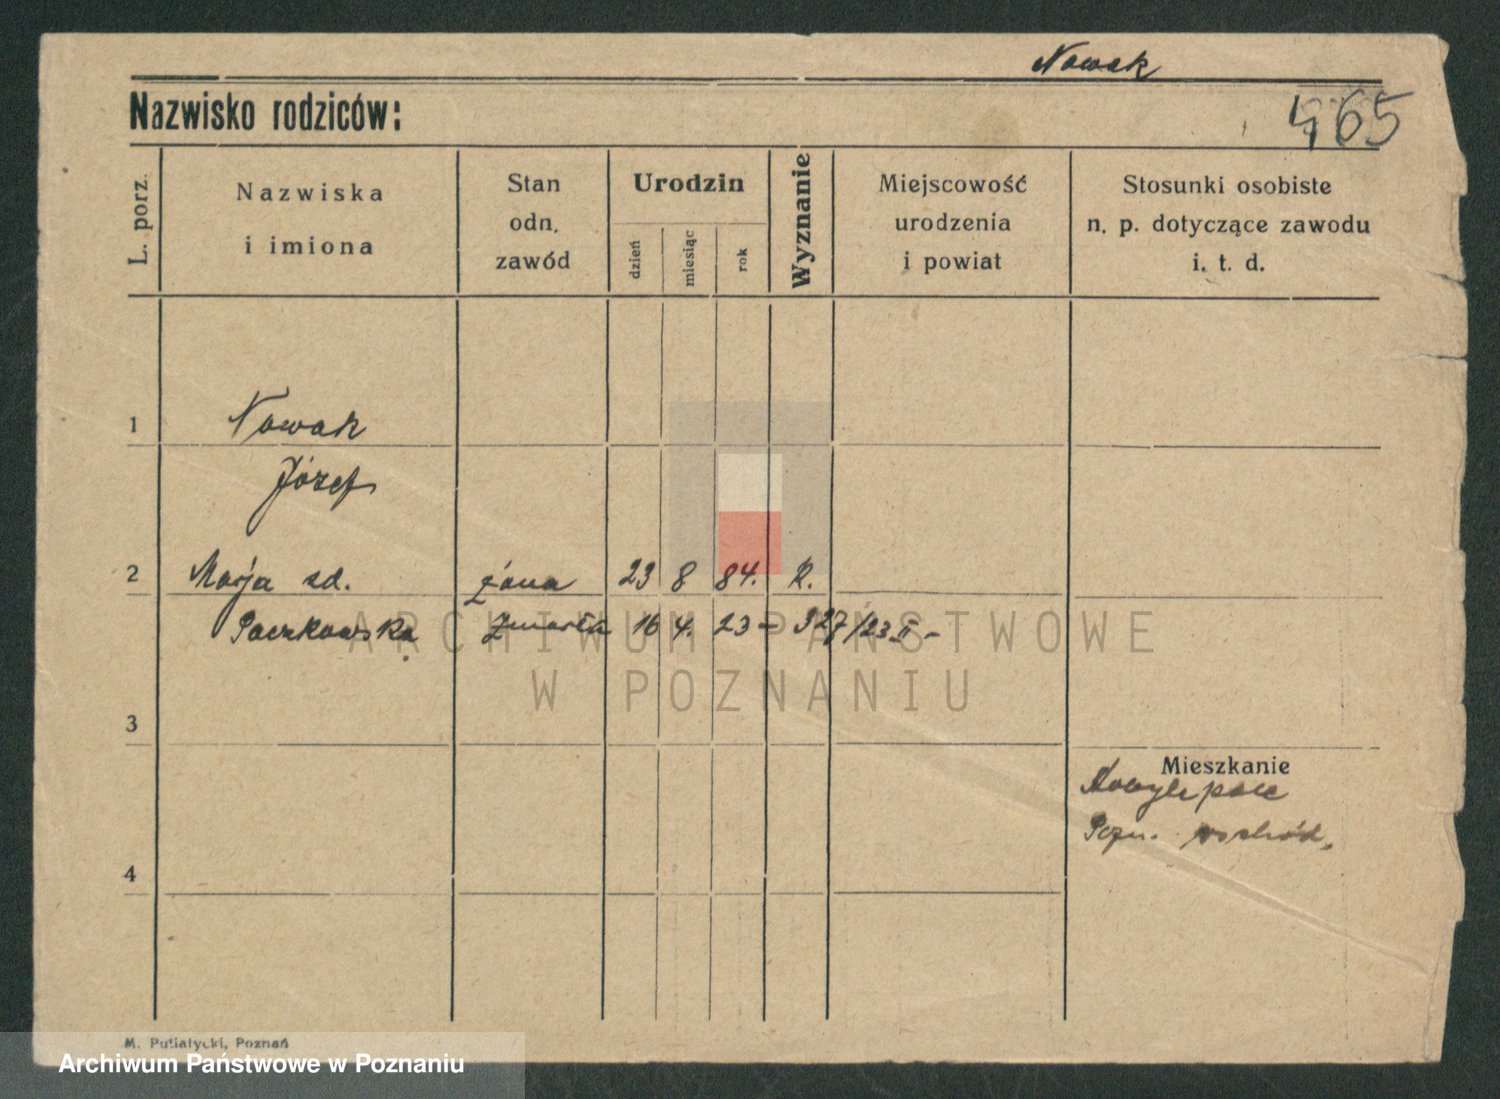 Nowak
Nazwisko rodziców:
465
L. porz.
Nazwiska
i imiona
Stan
odn.
zawód
Urodzin
dzień
miesiąc
rok
Wyznanie
Miejscowość
urodzenia
i powiat
Stosunki osobiste
n. p. dotyczące zawodu
i. t. d.
1 Nowak
Józef
2 Marja zd. żona 23 8 84. R.
Paczkowska zmarła 16 4. 23 - 327/23 II -
3
Mieszkanie
Pozn. wschód.
4
M. Putiatycki, Poznań
ARCHIWUM PAŃSTWOWE
W POZNANIU
Archiwum Państwowe w Poznaniu